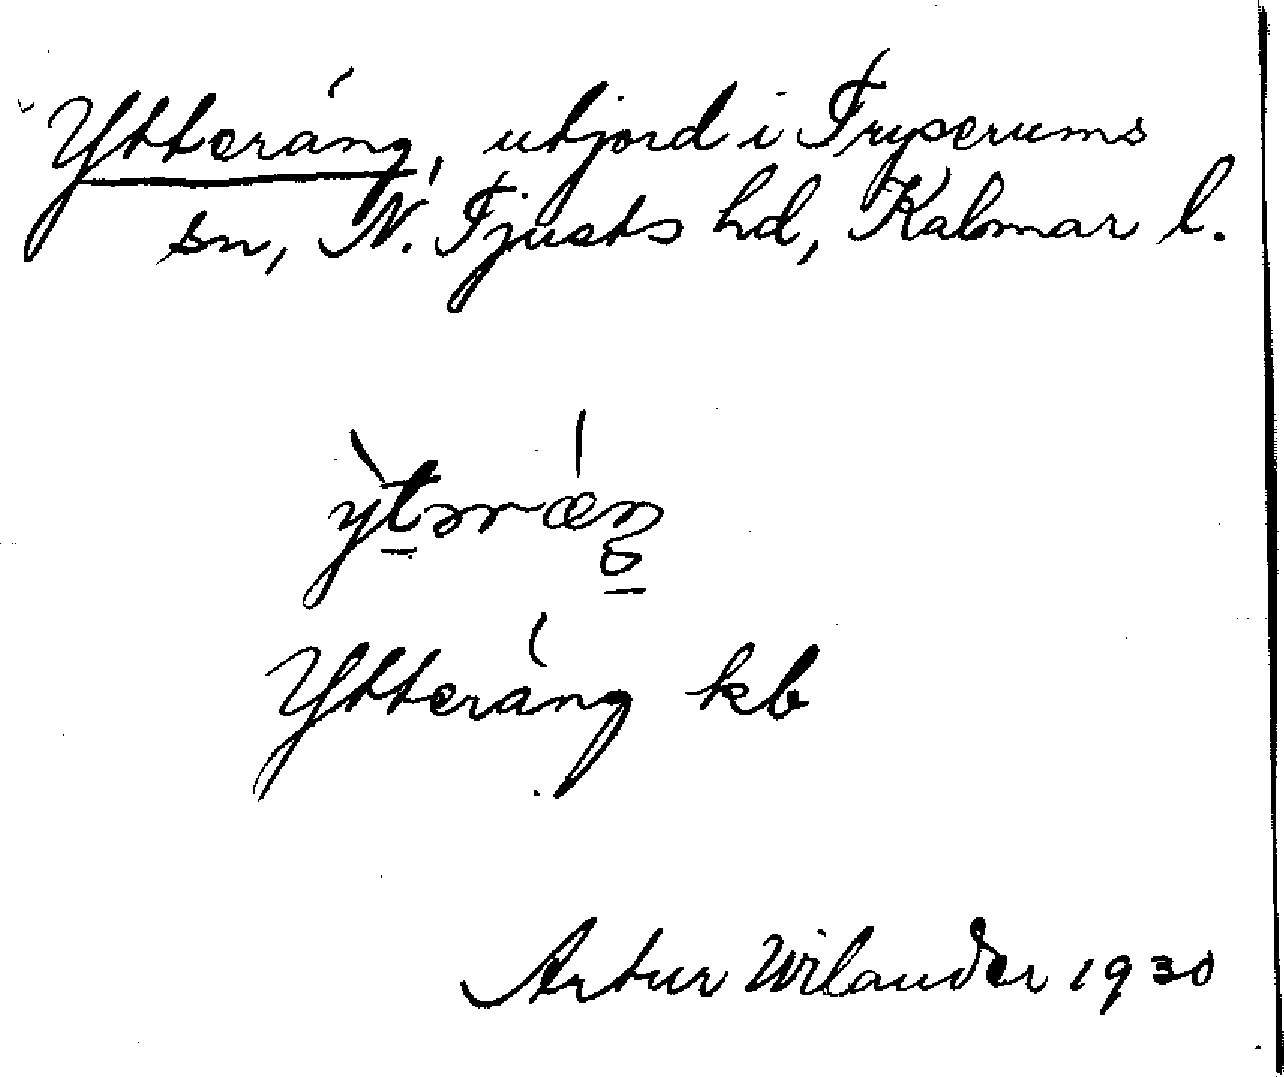 Ytteräng, utjord i Tryserums
sn, N. Tjusts hd, Kalmar l.
Ytteräng kb
Artur Wilander 1930